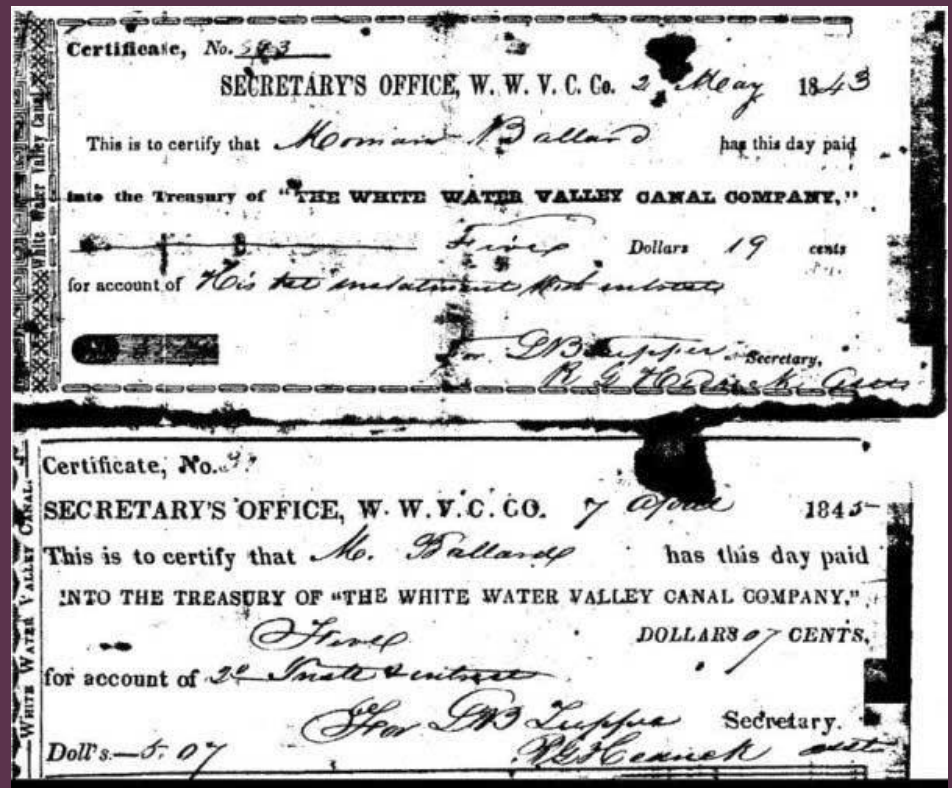 White Water Valley Canal
Certificate, No.
SECRETARY'S OFFICE, W. W. V. C. Co. 2 May 1843
This is to certify that Ballard has this day paid
into the Treasury of "THE WHITE WATER VALLEY CANAL COMPANY,"
Five Dollars 19 cents
for account of His instalment
For Tupper Secretary,
WHITE WATER VALLEY CANAL.
Certificate, No.
SECRETARY'S OFFICE, W. W. V. C. CO. 7 April 1845
This is to certify that M. Ballard has this day paid
INTO THE TREASURY OF "THE WHITE WATER VALLEY CANAL COMPANY,"
Five DOLLARS 07 CENTS,
for account of 2d
For Tupper Secretary.
Doll's.—5.07